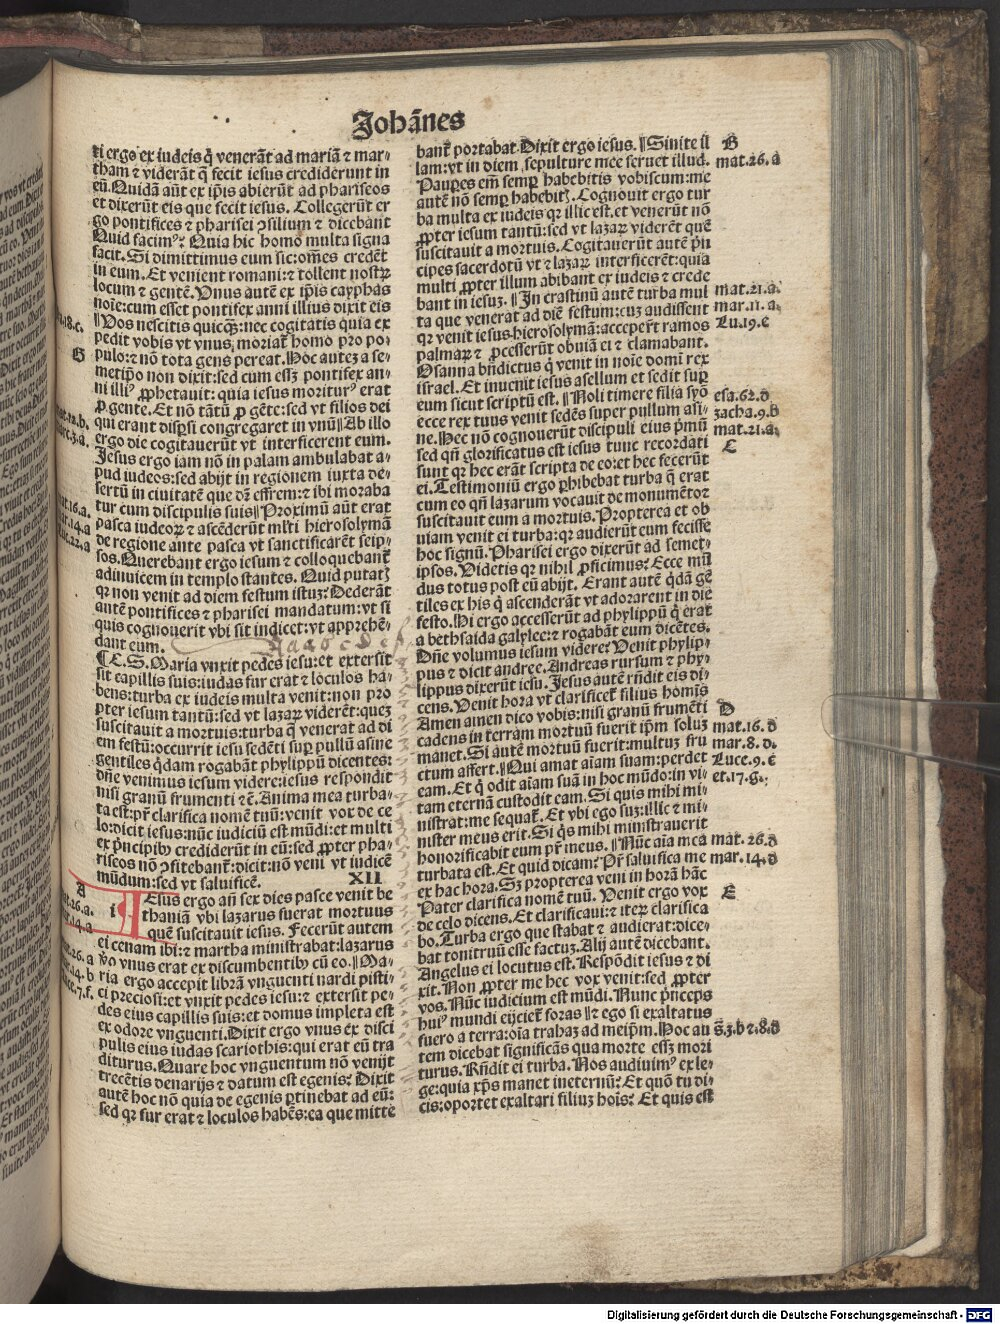 Johãnes
ti ergo ex iudeis q̃ venerãt ad mariã ⁊ mar⸗
tham ⁊ viderãt q̃ fecit iesus crediderunt in
eũ. Quidã aũt ex ip̃is abierũt ad phariseos
et dixerũt eis que fecit iesus. Collegerũt er
go pontifices ⁊ pharisei ꝯsilium ⁊ dicebant
Quid facimꝰ: Quia hic homo multa signa
facit. Si dimittimus eum sic: om̃es credẽt
in eum. Et venient romani: ⁊ tollent nostrꝝ
locum ⁊ gentẽ. Vnus autẽ ex ip̃is cayphas
noĩe: cum esset pontifex anni illius dixit eis
¶Vos nescitis quicq̃ꝫ: nec cogitatis quia ex
pedit vobis vt vnus moriat᷑ homo pro po⸗
pulo: ⁊ nõ tota gens pereat. Hoc auteꝫ a se⸗
metip̃o non dixit: sed cum essꝫ pontifex an⸗
ni illiꝰ ꝓphetauit: quia iesus moriturꝰ erat
ꝓ gente. Et nõ tãtũ ꝓ gẽte: sed vt filios dei
qui erant disp̱si congregaret in vnũ¶Ab illo
ergo die cogitauerũt vt interficerent eum.
Jesus ergo iam nõ in palam ambulabat a⸗
pud iudeos: sed abijt in regionem iuxta de⸗
sertũ in ciuitatẽ que dr̃ effrem: ⁊ ibi moraba
tur cum discipulis suis¶Proximũ aũt erat
pasca iudeoꝝ ⁊ ascẽderũt ml̃ti hierosolymã
de regione ante pasca vt sanctificarẽt seip⸗
sos. Querebant ergo iesum ⁊ colloquebant᷑
adinuicem in templo stantes. Quid putatꝭ
qꝛ non venit ad diem festum istuꝫ: Dederãt
autẽ pontifices ⁊ pharisei mandatum: vt si
quis cognouerit vbi sit indicet: vt apprehẽ⸗
dant eum.
¶C.S. Maria vnxit pedes iesu: et extersit
sit capillis suis: iudas fur erat ⁊ loculos ha⸗
bens: turba ex iudeis multa venit: non pro
pter iesum tantũ: sed vt lazaꝝ viderẽt: queꝫ
suscitauit a mortuis: turba q̃ venerat ad di
em festũ: occurrit iesu sedẽti sup̱ pullũ asine
gentiles q̃dam rogabãt phylippũ dicentes:
dñe venimus iesum videre: iesus respondit
nisi granũ frumenti ⁊c̃. Anima mea turba⸗
ta est: pr̃ clarifica nomẽ tuũ: venit vox de ce
lo: dicit iesus: nũc iudiciũ est mũdi: et multi
ex p̃ncipibꝰ crediderũt in eũ: sed ꝓpter pha⸗
riseos nõ ꝯfitebant᷑: dicit: nõ veni vt iudicẽ
mũdum: sed vt saluificẽ.
XII
i Iesus ergo añ sex dies pasce venit be
thaniã vbi lazarus fuerat mortuus
quẽ suscitauit iesus. Fecerũt autem
ei cenam ibi: ⁊ martha ministrabat: lazarus
vo vnus erat ex discumbentibꝰ cũ eo. ¶Ma⸗
ria ergo accepit librã vnguenti nardi pisti⸗
ci preciosi: et vnxit pedes iesu: ⁊ extersit pe⸗
des eius capillis suis: et domus impleta est
ex odore vnguenti. Dixit ergo vnus ex disci
pulis eius iudas scariothis: qui erat eũ tra
diturus. Quare hoc vnguentum nõ venijt
trecẽtis denarijs ⁊ datum est egenis: Dixit
autẽ hoc nõ quia de egenis p̱tinebat ad eũ:
sed qꝛ fur erat ⁊ loculos habẽs: ea que mitte
18.c.
G
22.b.
3.a.
16.a.
14.a
22.a
A
26.a.
14.a
26.a
14.b
7.f.
bant᷑ portabat. Dixit ergo iesus. ¶Sinite il
lam: vt in diem sepulture mee seruet illud.
Pauꝑes em̃ semp̱ habebitis vobiscum: me
autẽ nõ semp̱ habebitꝭ. Cognouit ergo tur
ba multa ex iudeis qꝛ illic est. et venerũt nõ
ꝓpter iesum tantũ: sed vt lazaꝝ viderẽt quẽ
suscitauit a mortuis. Cogitauerũt autẽ p̃n
cipes sacerdotũ vt ⁊ lazaꝝ interficerẽt: quia
multi ꝓpter illum abibant ex iudeis ⁊ crede
bant in iesuꝫ. ¶In crastinũ autẽ turba mul
ta que venerat ad diẽ festum: cuꝫ audissent
qꝛ venit iesus hierosolymã: acceper̃t ramos
palmaꝝ ⁊ ꝓcesserũt obuiã ei ⁊ clamabant.
Osanna bñdictus q̃ venit in noĩe domĩ rex
israel. Et inuenit iesus asellum et sedit sup̱
eum sicut scriptũ est. ¶Noli timere filia syõ
ecce rex tuus venit sedẽs super pullum asi⸗
ne. Hec nõ cognouerũt discipuli eius p̃mũ
sed qñ glorificatus est iesus tunc recordati
sunt qꝛ hec erãt scripta de eo: et hec fecerũt
ei. Testimoniũ ergo p̱hibebat turba q̃ erat
cum eo qñ lazarum vocauit de monumẽto ⁊
suscitauit eum a mortuis. Propterea et ob
uiam venit ei turba: qꝛ audierũt eum fecisse
hoc signũ. Pharisei ergo dixerũt ad semet⸗
ipsos. Videtis qꝛ nihil ꝓficimus: Ecce mũ
dus totus post eũ abijt. Erant autẽ q̃dã gẽ
tiles ex his q̃ ascenderãt vt adorarent in die
festo. Hi ergo accesserũt ad phylippũ q̃ erat
a bethsaida galylee: ⁊ rogabãt eum dicẽtes.
Dñe volumus iesum videre: Venit phylip⸗
pus ⁊ dicit andree. Andreas rursum ⁊ phy⸗
lippus dixerũt iesu. Jesus autẽ rñdit eis di⸗
cens. Venit hora vt clarificet᷑ filius homĩs
Amen amen dico vobis: nisi granũ frumẽti
cadens in terram mortuũ fuerit ip̃m soluꝫ
manet. Si autẽ mortuũ fuerit: multuꝫ fru
ctum affert. ¶Qui amat aĩam suam: perdet
eam. Et q̃ odit aĩam suã in hoc mũdo: in vi⸗
tam eternã custodit eam. Si quis mihi mi⸗
nistrat: me sequat᷑. Et vbi ego suꝫ: illic ⁊ mi⸗
nister meus erit. Si q̃s mihi ministrauerit
honorificabit eum pr̃ meus. ¶Nũc aĩa mea
turbata est. Et quid dicam: Pr̃ saluifica me
ex hac hora. Sꝫ propterea veni in horã hãc
Pater clarifica nomẽ tuũ. Venit ergo vox
de celo dicens. Et clarificaui: ⁊ iteꝝ clarifica
bo. Turba ergo que stabat ⁊ audierat: dice⸗
bat tonitruũ esse factuꝫ. Alij autẽ dicebant.
Angelus ei locutus est. Respõdit iesus ⁊ di
xit. Non ꝓpter me hec vox venit: sed ꝓpter
vos. Nũc iudicium est mũdi. Nunc p̃nceps
huiꝰ mundi eijciet᷑ foras ¶⁊ ego si exaltatus
fuero a terra: oĩa trahaꝫ ad meip̃m. Hoc au
tem dicebat significãs qua morte essꝫ mori
turus. Rñdit ei turba. Nos audiuimꝰ ex le⸗
ge: quia xp̃s manet ineternũ: Et quõ tu di⸗
cis: oportet exaltari filiuꝫ hoĩs: Et quis est
B
mat.26.a
mat.21.a.
mar.11.a.
Lu.19.e
esa.62.d
zacha.9.b
mat.21.a.
C
D
mat.16.d
mar.8.d.
Luce.9.c
et.17.g.
mat.26.d
mar.14.d
E
s̃.3.b ⁊.8.d
Digitalisierung gefördert durch die Deutsche Forschungsgemeinschaft - DFG